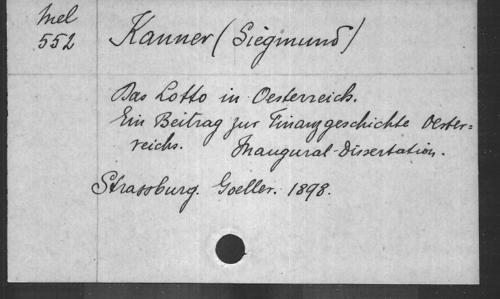 Mel
552
Kanner (Siegmund)
Das Lotto in Oesterreich.
Ein Beitrag zur Finanzgeschichte Oester=
reichs. Inaugural-Dissertation.
Strassburg. Goeller. 1898.